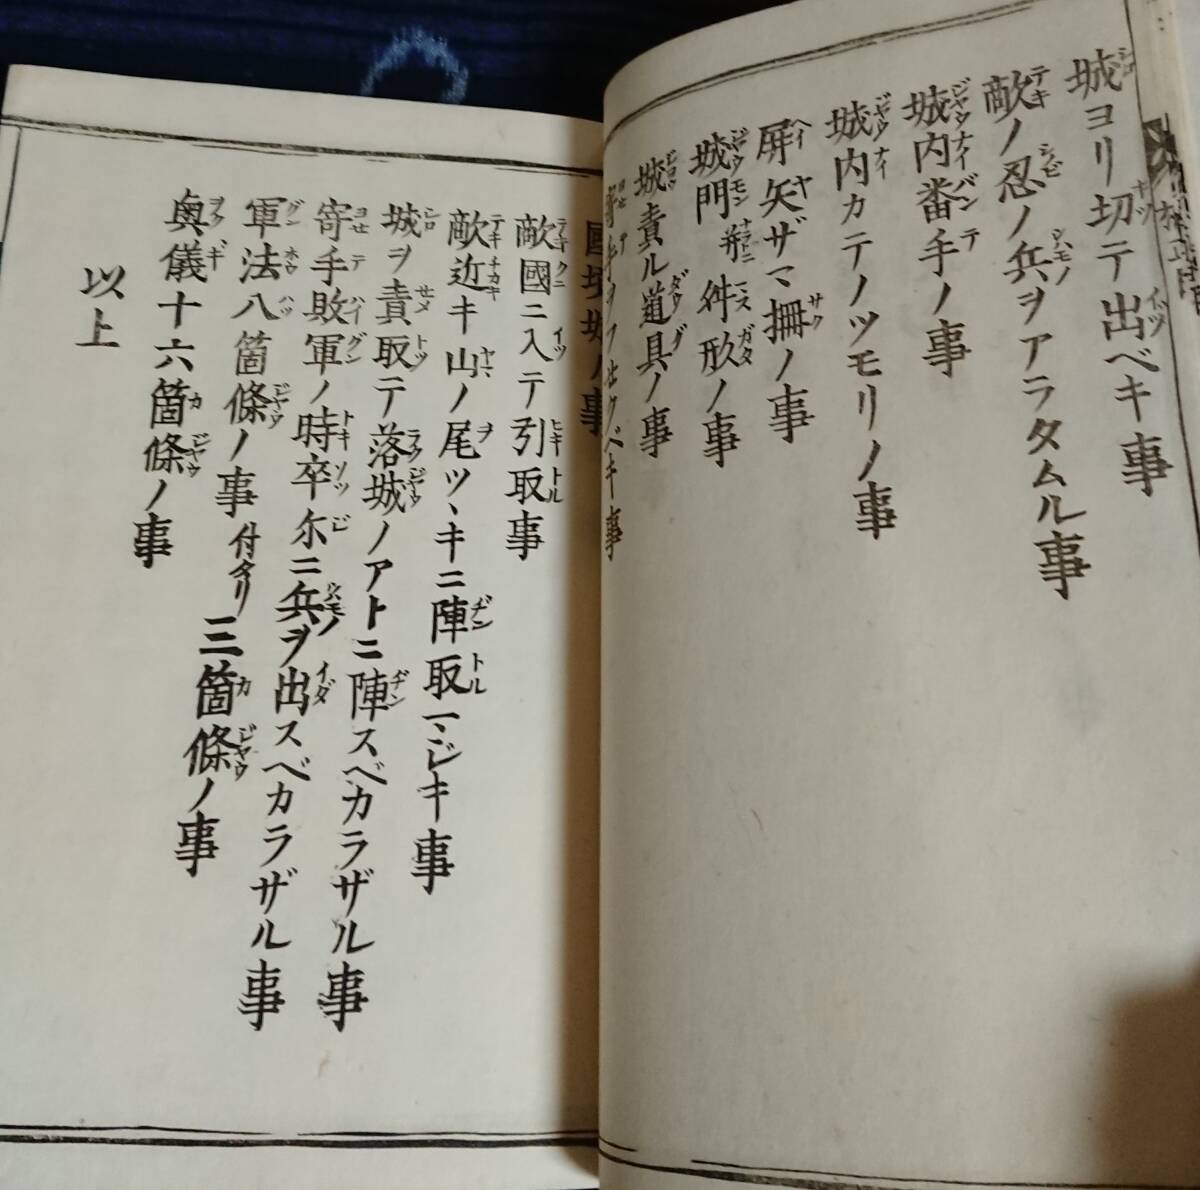 城ヨリ切テ出ベキ事
敵ノ忍ノ兵ヲアラタムル事
城内番手ノ事
城内カテノツモリノ事
屏矢ザマ柵ノ事
城門并舛形ノ事
城責ル道具ノ事
寄手ヲフセクベキ事
國境城ノ事
敵國ニ入テ引取事
敵近キ山ノ尾ツヽキニ陣取マジキ事
城ヲ責取テ落城ノアトニ陣スベカラザル事
寄手敗軍ノ時卒尓ニ兵ヲ出スベカラザル事
軍法八箇條ノ事付タリ三箇條ノ事
奥儀十六箇條ノ事
以上